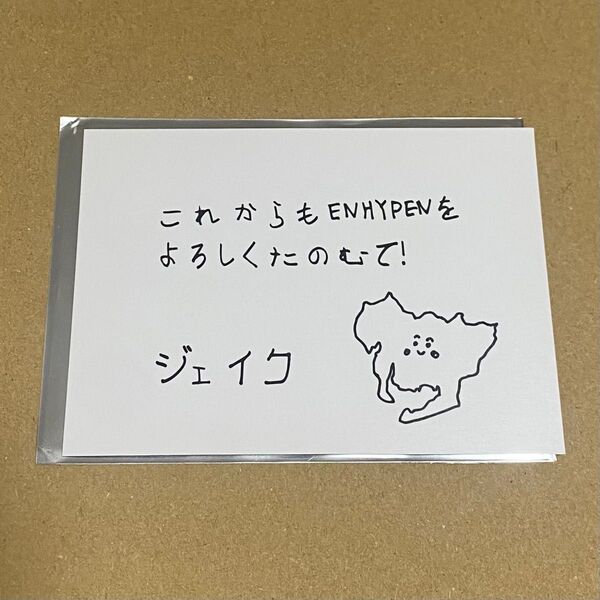 これからもENHYPENを
よろしくたのむで!
ジェイク